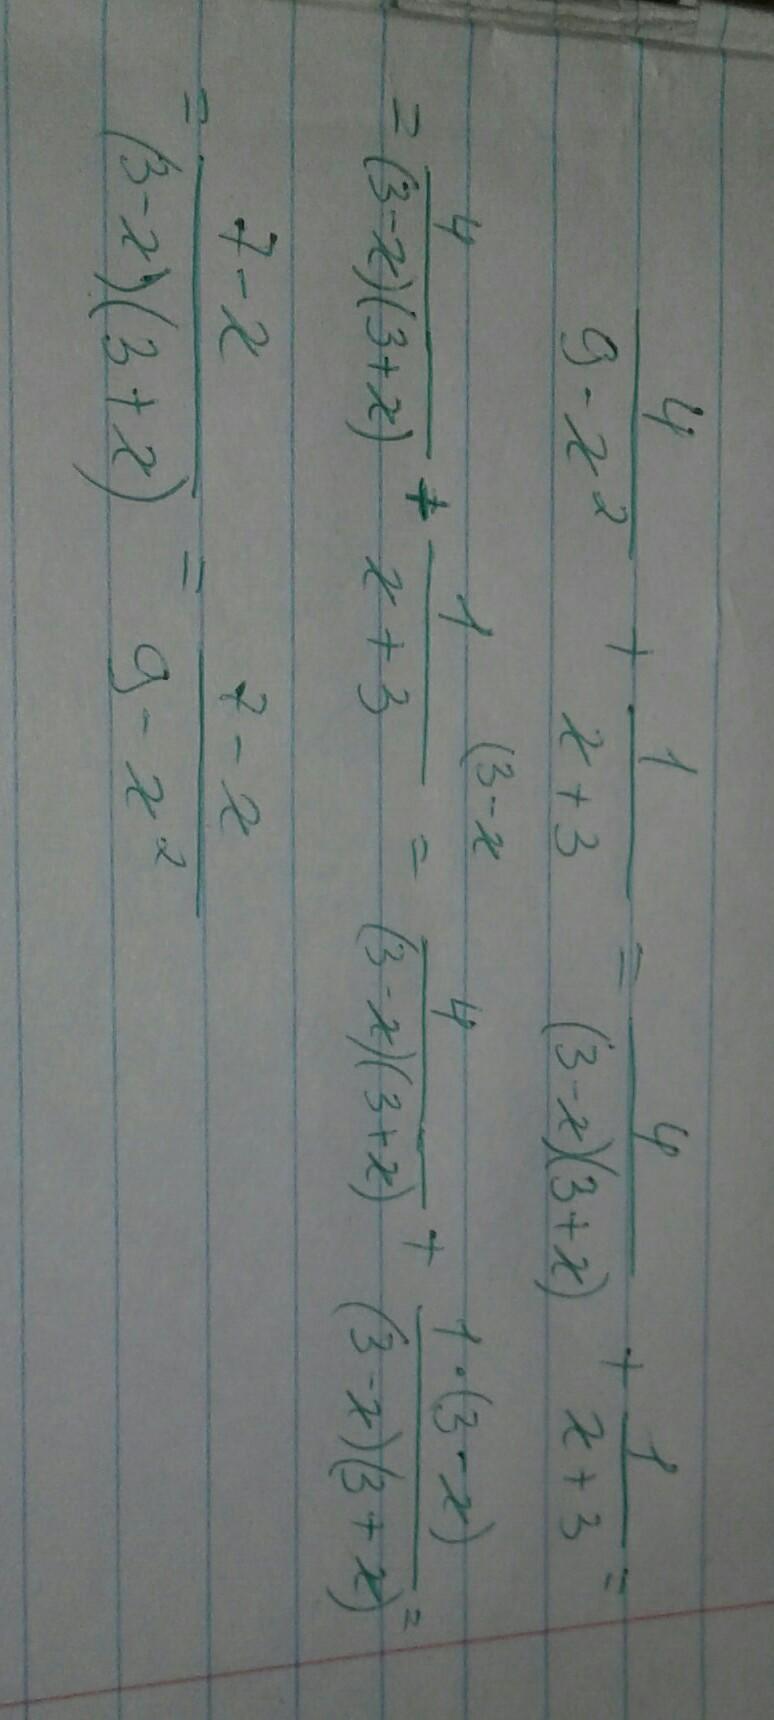 4/(9-x²) + 1/(x+3) = 4/((3-x)(3+x)) + 1/(x+3) =
= 4/((3-x)(3+x)) + 1/(x+3) (3-x = 4/((3-x)(3+x)) + 1·(3-x)/((3-x)(3+x)) =
= 7-x/((3-x)(3+x)) = 7-x/(9-x²)